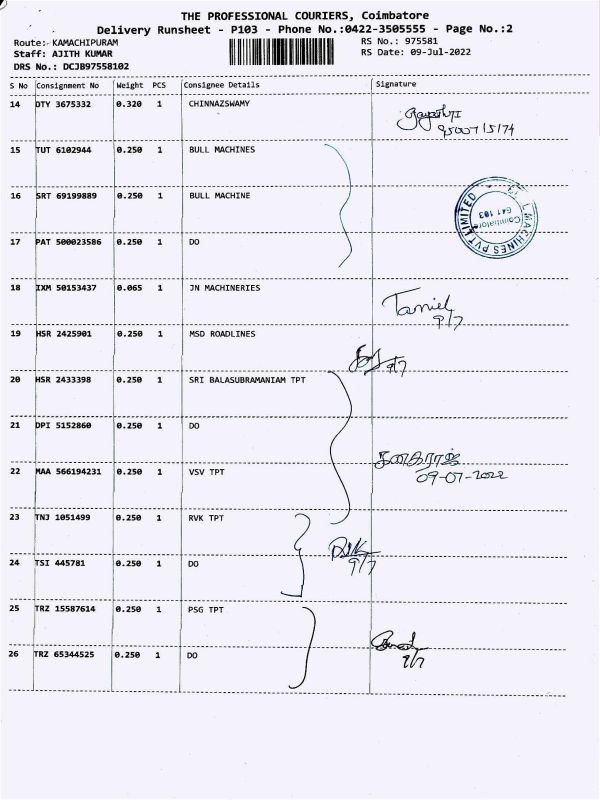 THE PROFESSIONAL COURIERS, Coimbatore
Delivery Runsheet - P103 - Phone No.:0422-3505555 - Page No.:2
Route: KAMACHIPURAM RS No.: 975581
Staff: AJITH KUMAR RS Date: 09-Jul-2022
DRS No.: DCJB97558102
S No Consignment No Weight PCS Consignee Details Signature
14 OTY 3675332 0.320 1 CHINNAZSWAMY
15 TUT 6102944 0.250 1 BULL MACHINES
16 SRT 69199889 0.250 1 BULL MACHINE
MACHINES PVT LIMITED
Coimbatore
641 103
17 PAT 500023586 0.250 1 DO
18 IXM 50153437 0.065 1 JN MACHINERIES
Taniel
9/7
19 HSR 2425901 0.250 1 MSD ROADLINES
9/7
20 HSR 2433398 0.250 1 SRI BALASUBRAMANIAM TPT
21 DPI 5152860 0.250 1 DO
22 MAA 566194231 0.250 1 VSV TPT
கனகராஜ்
09-07-2022
23 TNJ 1051499 0.250 1 RVK TPT
9/7
24 TSI 445781 0.250 1 DO
25 TRZ 15587614 0.250 1 PSG TPT
9/7
26 TRZ 65344525 0.250 1 DO